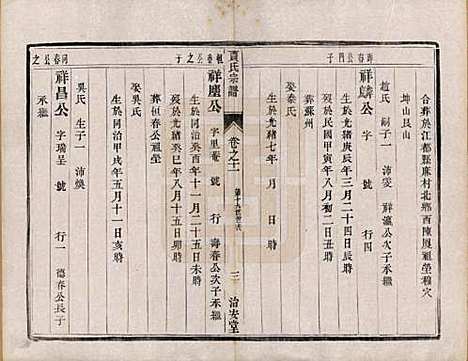 壽春公四子
合葬於江都縣麻村北鄉西陳風祖塋穆穴
坤山艮山
祥麟公 字 號 行四
趙氏 嗣子一 沛 祥瀛公次子承繼
生於光緒庚辰年三月二十四日辰時
歿於民國甲寅年八月初二日丑時
葬蘇州
娶秦氏
生於光緒七年 月 日 時
黃氏宗譜
卷之十一
三 治安堂
桓春公之子
祥麈公 字里菴 號 行 壽春公次子承繼
生於同治癸酉年十一月十二日未時
歿於光緒癸巳年八月十五日卯時
葬桓春公祖塋
娶吳氏
生於同治甲戌年五月十一日亥時
吳氏 生子一 沛煥
同春公之
祥昌公 字瑞呈 號 行一 德春公長子
承繼